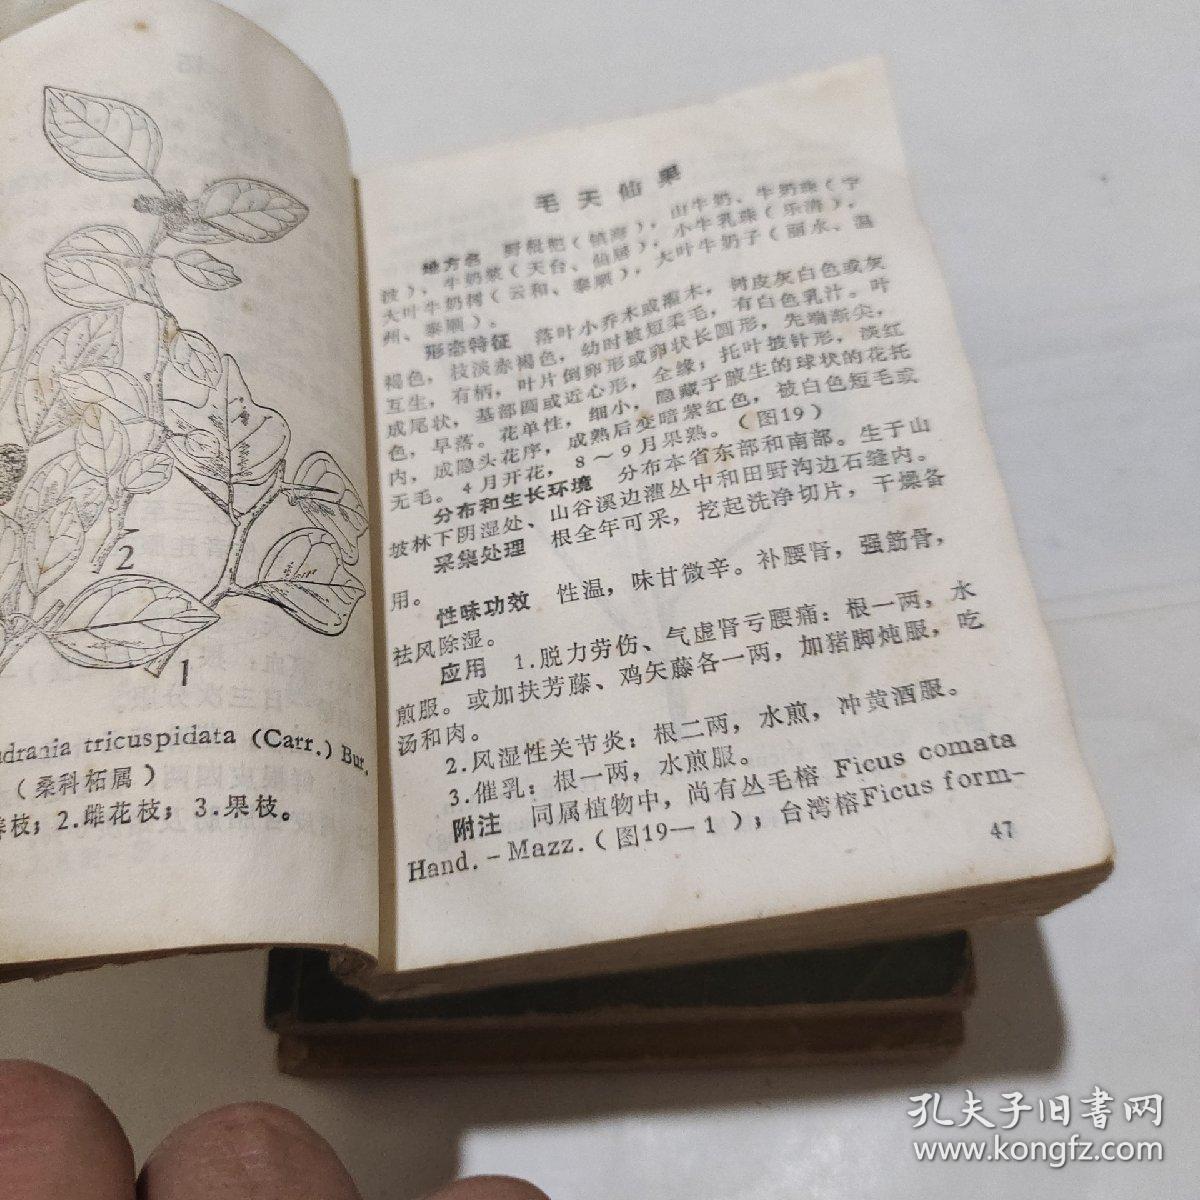 udrania tricuspidata (Carr.) Bur.
(桑科柘属)
枝；2.雌花枝；3.果枝。
2
1
毛天仙果
地方名 野枇杷(镇海)，山牛奶、牛奶珠(宁
波)，牛奶浆(天台、仙居)，小牛乳珠(乐清)，
大叶牛奶树(云和、泰顺)，大叶牛奶子(丽水、温
州、泰顺)。
形态特征 落叶小乔木或灌木，树皮灰白色或灰
褐色，枝淡赤褐色，幼时被短柔毛，有白色乳汁。叶
互生，有柄，叶片倒卵形或卵状长圆形，先端渐尖，
成尾状，基部圆或近心形，全缘；托叶披针形，淡红
色，早落。花单性，细小，隐藏于腋生的球状的花托
内，成隐头花序，成熟后变暗紫红色，被白色短毛或
无毛。4月开花，8～9月果熟。(图19)
分布和生长环境 分布本省东部和南部。生于山
坡林下阴湿处、山谷溪边灌丛中和田野沟边石缝内。
采集处理 根全年可采，挖起洗净切片，干燥备
用。
性味功效 性温，味甘微辛。补腰肾，强筋骨，
祛风除湿。
应用 1.脱力劳伤、气虚肾亏腰痛：根一两，水
煎服。或加扶芳藤、鸡矢藤各一两，加猪脚炖服，吃
汤和肉。
2.风湿性关节炎：根二两，水煎，冲黄酒服。
3.催乳：根一两，水煎服。
附注 同属植物中，尚有丛毛榕 Ficus comata
Hand.-Mazz.(图19—1)；台湾榕Ficus form-
47
孔夫子旧书网
www.kongfz.com